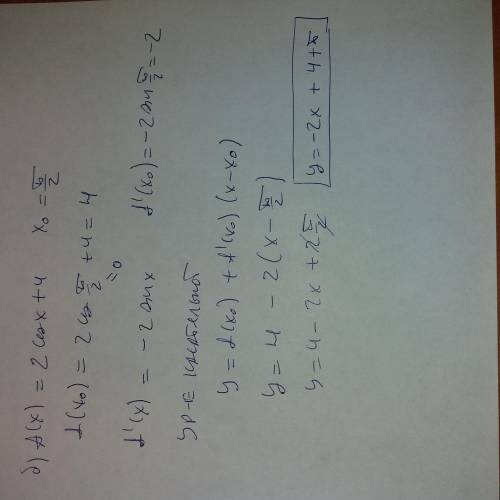 б) f(x) = 2 cos x + 4   x₀ = π/2
f(x₀) = 2 cos π/2 + 4 = 4
=0
f'(x) = -2 sin x   f'(x₀) = -2 sin π/2 = -2
ур-е касательной
y = f(x₀) + f'(x₀) (x - x₀)
y = 4 - 2 (x - π/2)
y = 4 - 2x + 2π/2   y = -2x + 4 + π